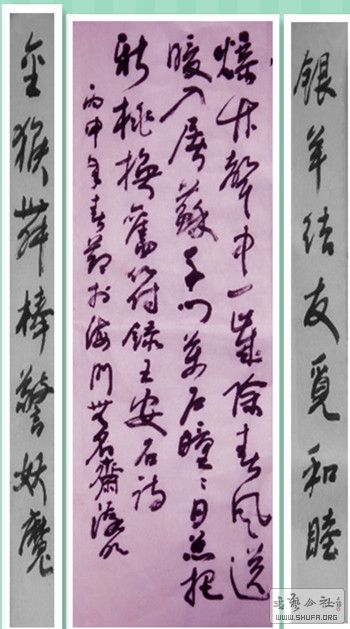 银羊结友觅和睦
爆竹声中一岁除春风送
暖入屠苏千门万户曈〻日总把
新桃换旧符录王安石诗
丙申年春节于海门无名斋
金猴舞棒警妖魔
书艺公社
WWW.SHUFA.ORG